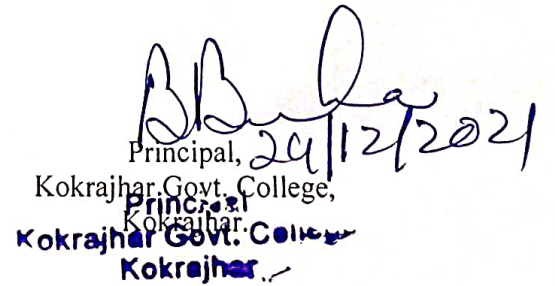 29/12/2021
Principal,
Kokrajhar Govt. College,
Kokrajhar.
Principal
Kokrajhar Govt. College
Kokrajhar